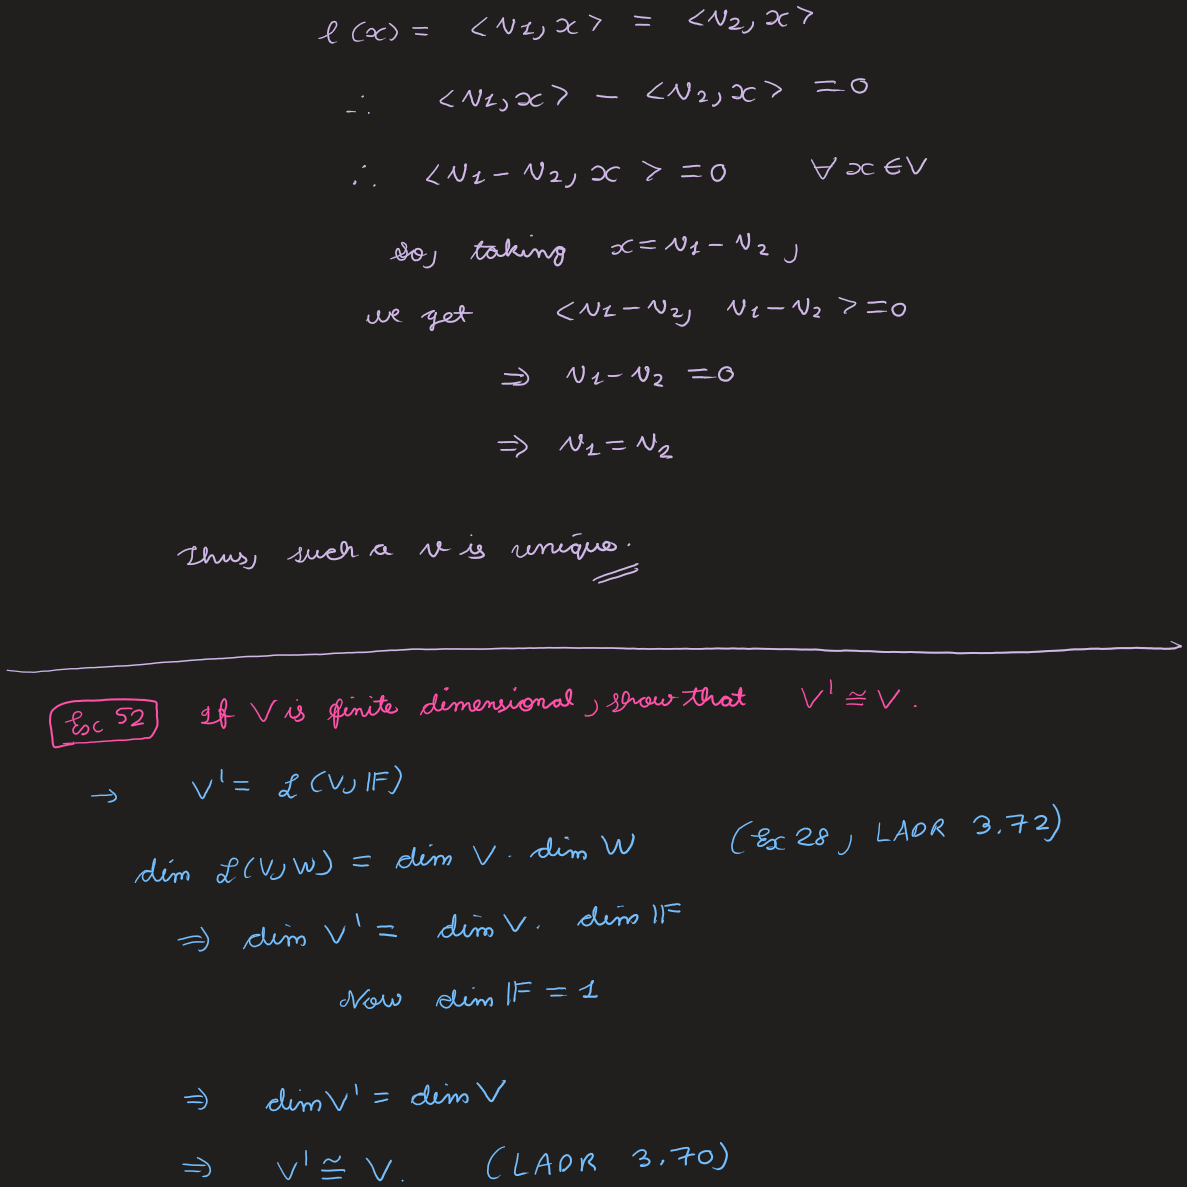 l(x) = <v1, x> = <v2, x>
∴ <v1, x> - <v2, x> = 0
∴ <v1 - v2, x> = 0 ∀ x ∈ V
so, taking x = v1 - v2,
we get <v1 - v2, v1 - v2> = 0
⇒ v1 - v2 = 0
⇒ v1 = v2
Thus, such a v is unique.
Ex 52 If V is finite dimensional, show that V' ≅ V.
→ V' = ℒ(V, 𝔽)
dim ℒ(V, W) = dim V . dim W (Ex 28, LADR 3.72)
⇒ dim V' = dim V . dim 𝔽
Now dim 𝔽 = 1
⇒ dim V' = dim V
⇒ V' ≅ V. (LADR 3.70)